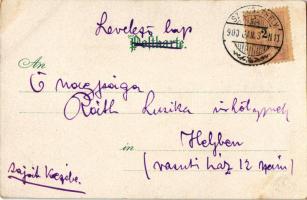 Levelező lap
Postkarte
An
Ő nagysága
Ráth Luzika úrhölgynek
in Helyben
(vasuti ház 12 szám)
saját kezébe.